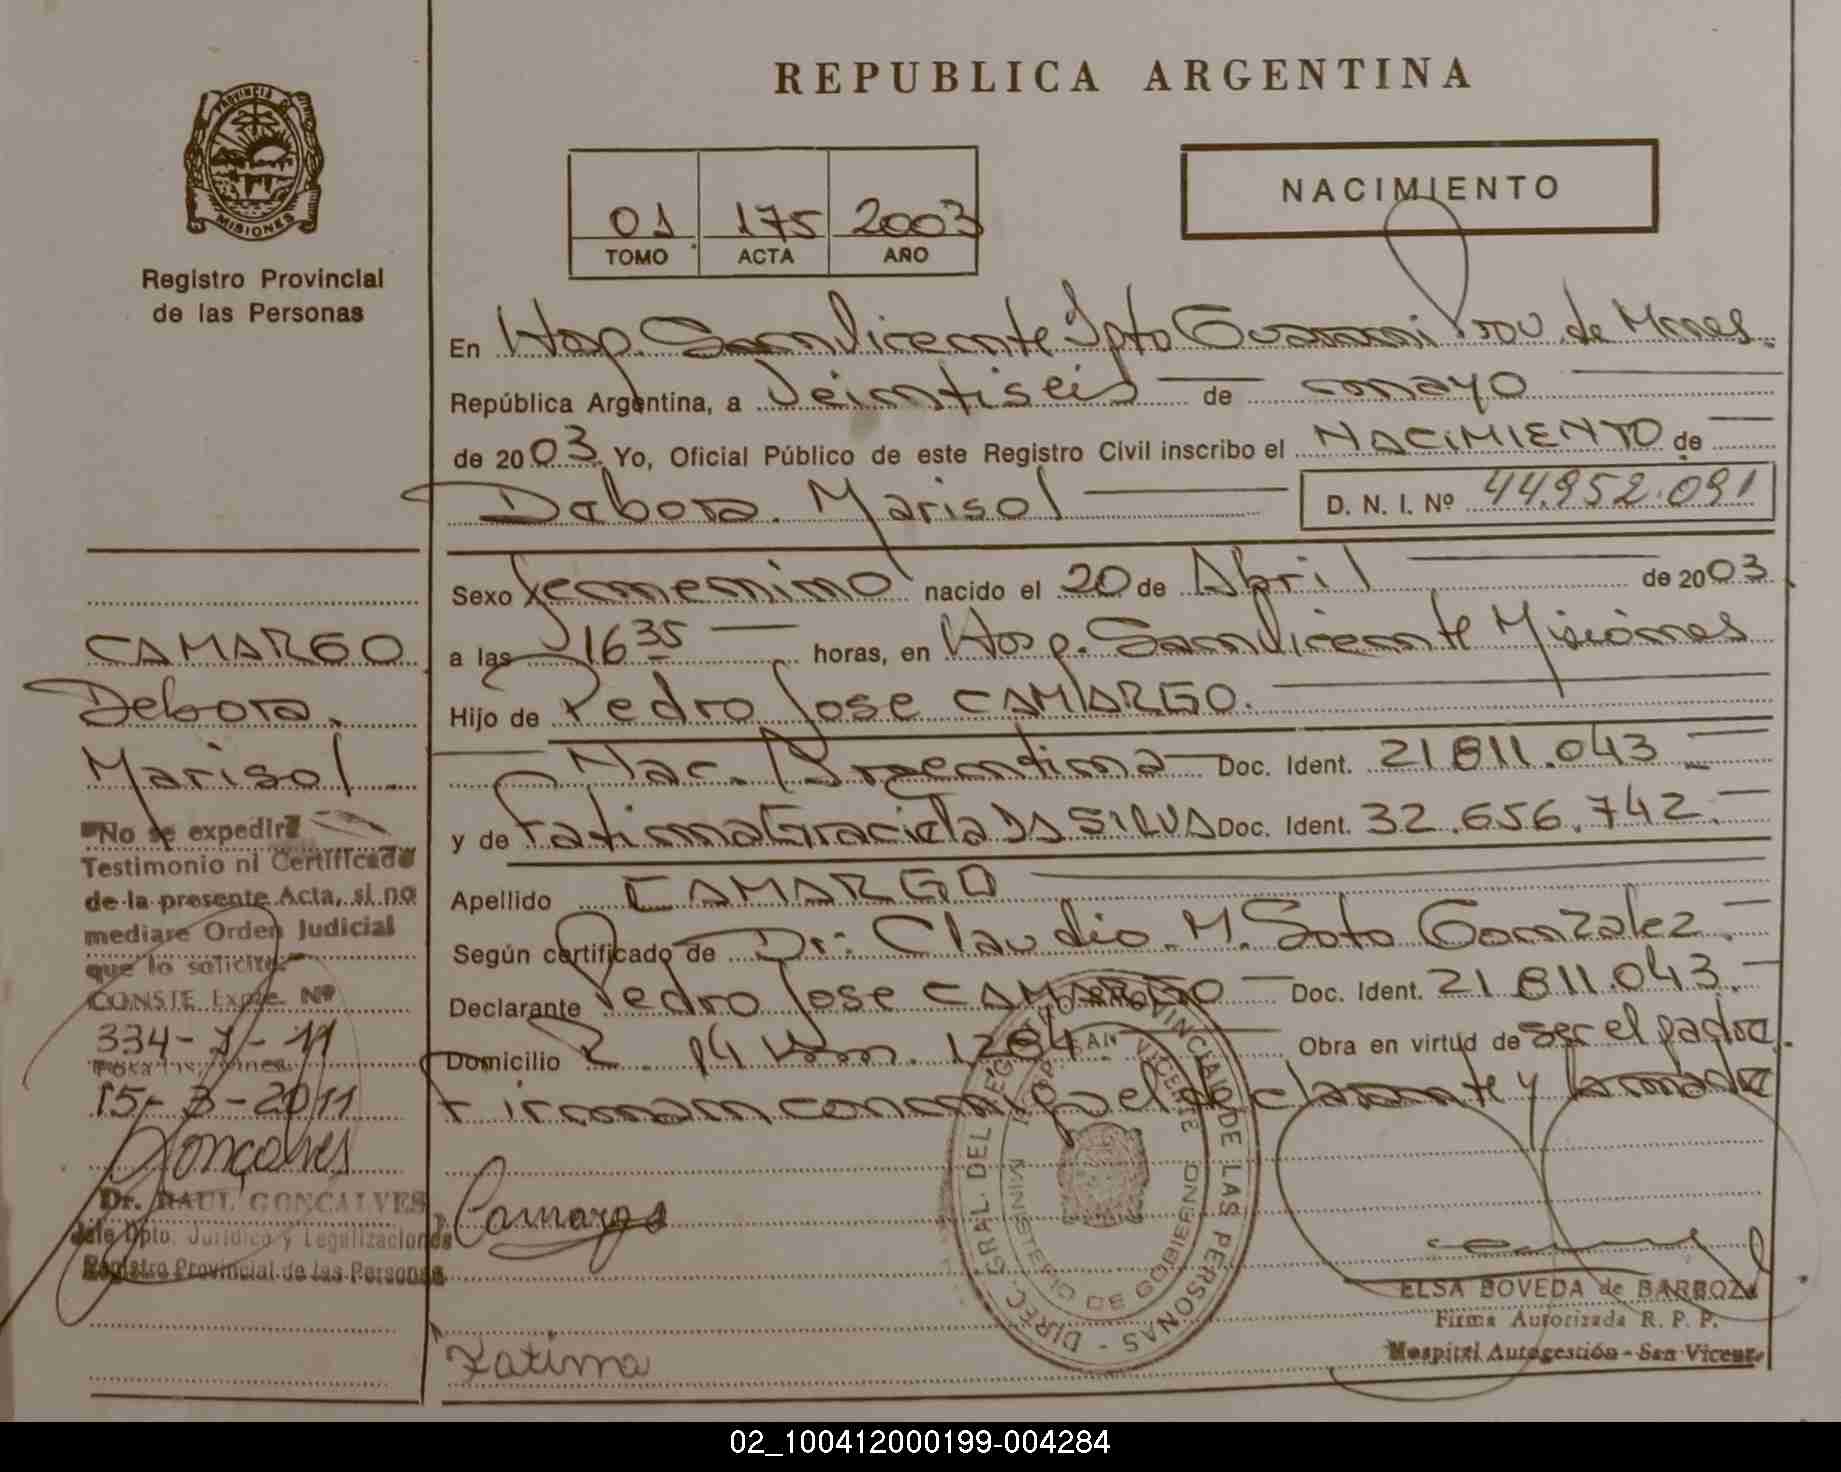 REPUBLICA ARGENTINA
PROVINCIA DE
MISIONES
Registro Provincial
de las Personas
01 175 2003
TOMO ACTA AÑO
NACIMIENTO
En Hosp. San Vicente Dpto Guarani Prov. de Mnes.
República Argentina, a Veintiseis de mayo
de 2003 Yo, Oficial Público de este Registro Civil inscribo el NACIMIENTO de
Debora Marisol D. N. I. Nº 44.952.091
Sexo femenino nacido el 20 de Abril de 2003
a las 16 35 horas, en Hosp. San Vicente Misiones
Hijo de Pedro Jose CAMARGO.
Nac. Argentina Doc. Ident. 21 811.043
y de Fatima Graciela DA SILVA Doc. Ident. 32.656.742.
Apellido CAMARGO
Según certificado de Dr. Claudio M. Soto Gonzalez.
Declarante Pedro Jose CAMARGO Doc. Ident. 21 811.043.
Domicilio R. 14 Km. 1264 Obra en virtud de ser el padre.
Firman conmigo el declarante y la madre
CAMARGO
Debora
Marisol
"No se expedirá
Testimonio ni Certificado
de la presente Acta, si no
mediare Orden Judicial
que lo solicite"
CONSTE Expte. Nº
334-J-11
Posadas, Mnes.
15-3-2011
Gonçalves
Dr. RAUL GONCALVES
Jefe Dpto. Jurídico y Legalizaciones
Registro Provincial de las Personas
Camargo
Fatima
DIREC. GRAL. DEL REGISTRO PROVINCIAL DE LAS PERSONAS
SAN VICENTE
MINISTERIO DE GOBIERNO
ELSA BOVEDA de BARROZA
Firma Autorizada R. P. P.
Hospital Autogestión - San Vicente
02_100412000199-004284